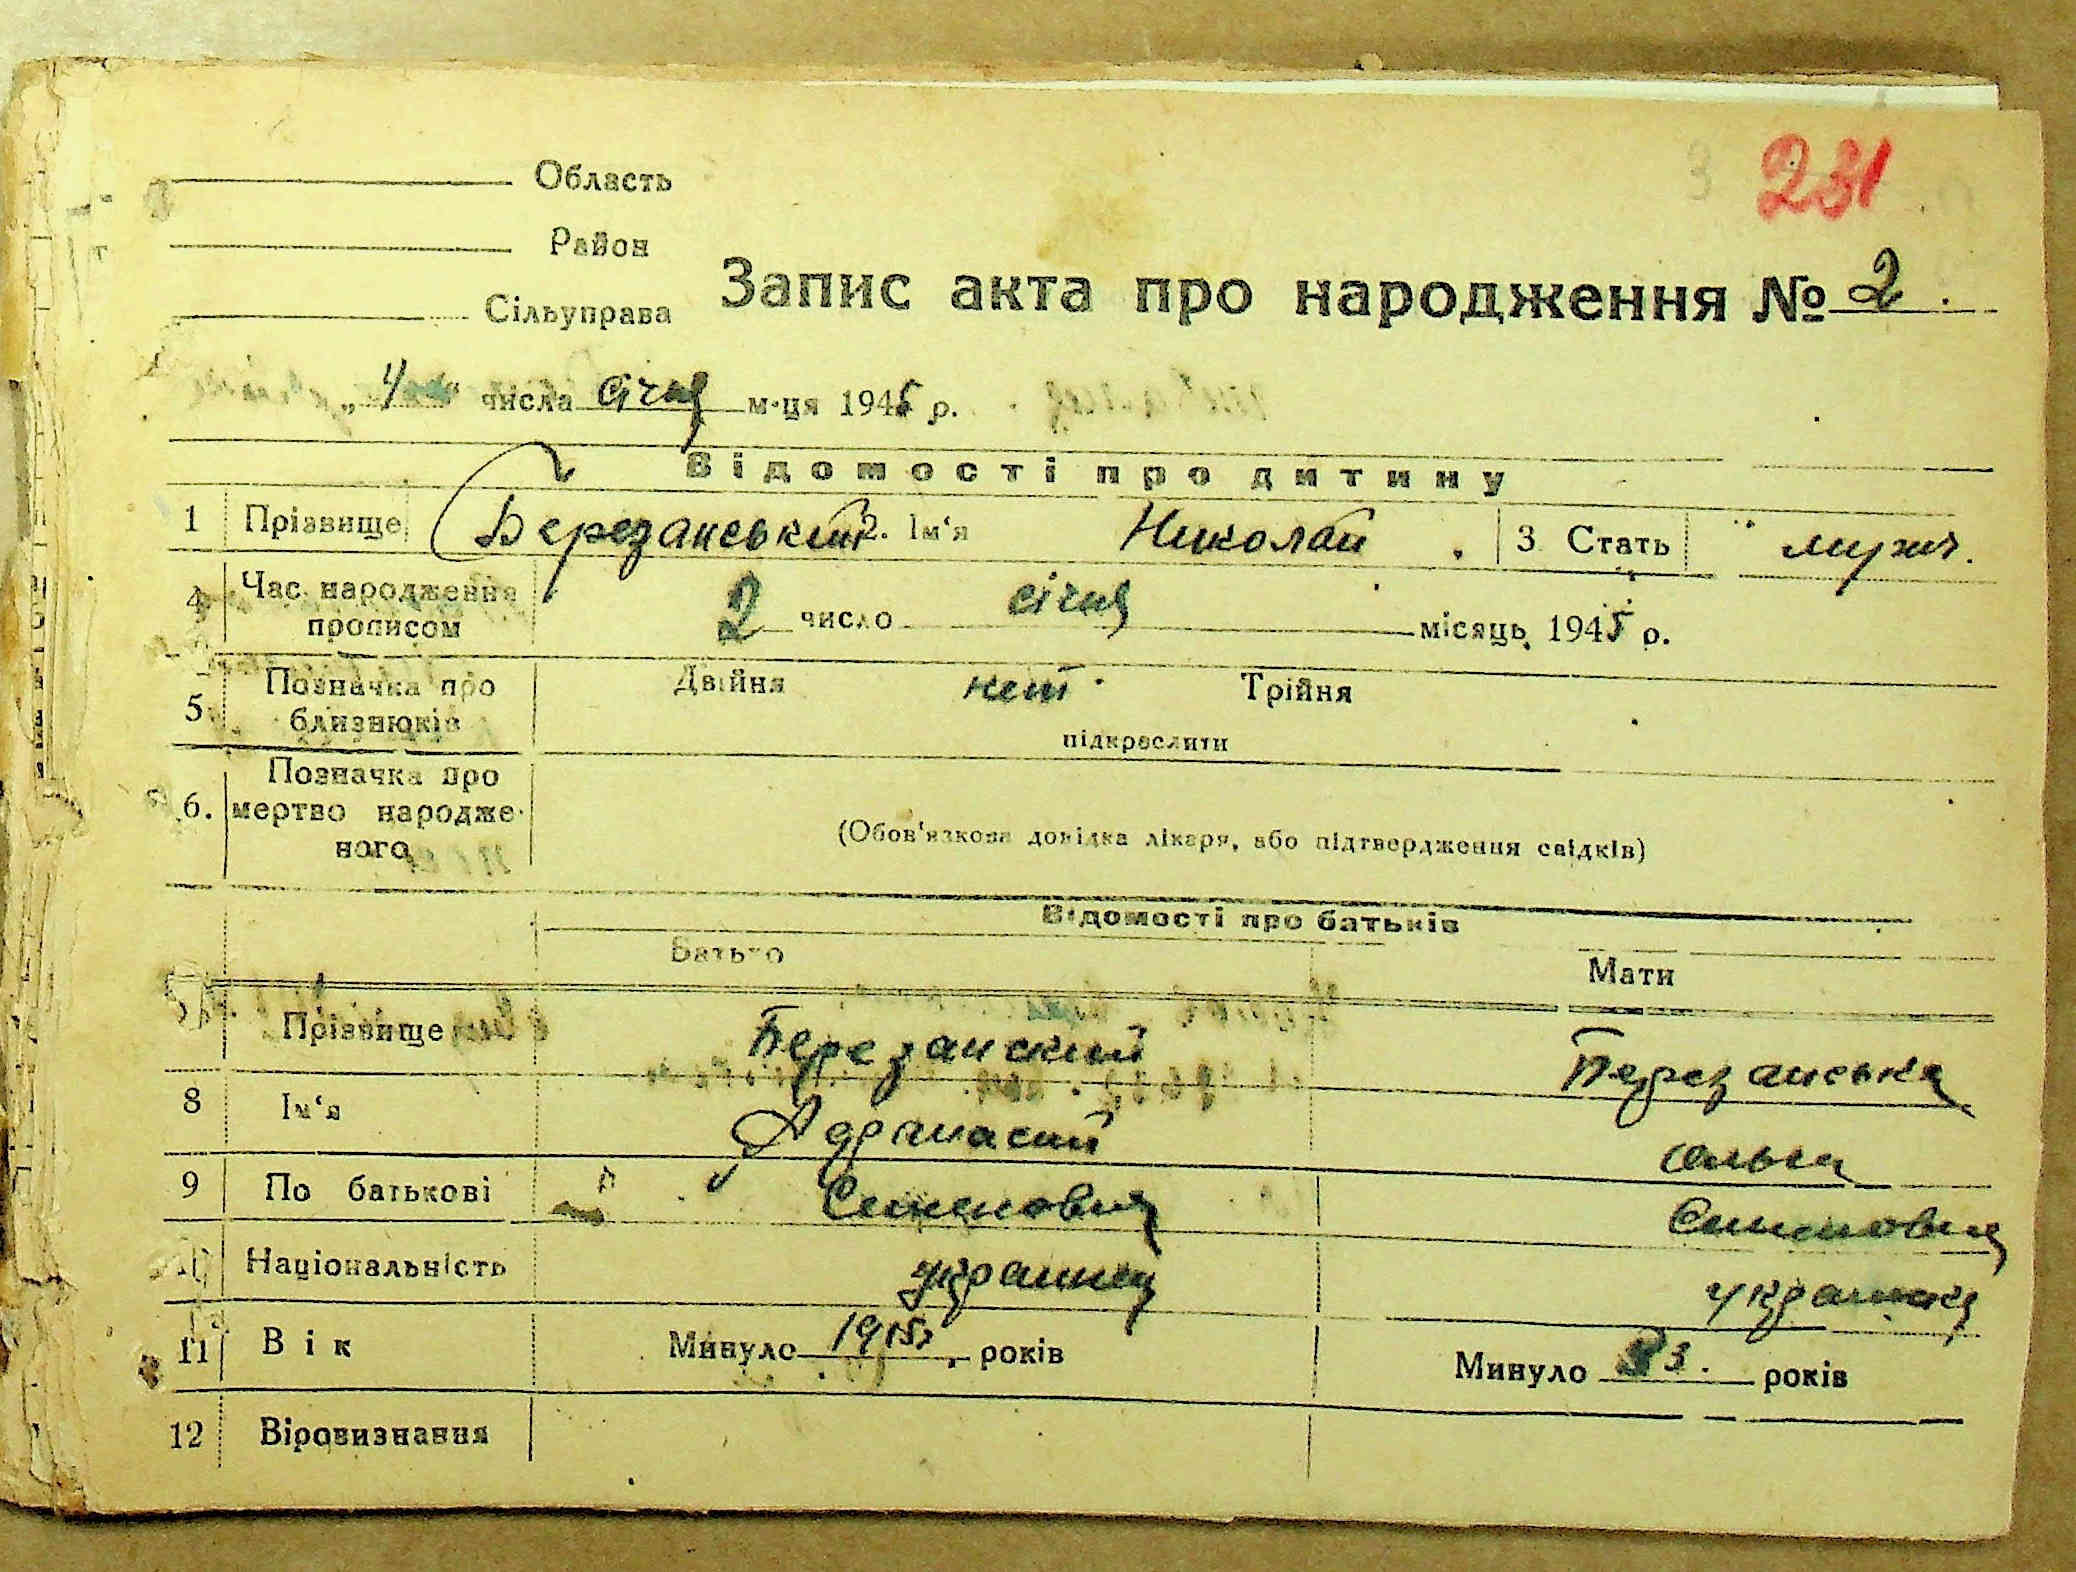 231
Область
Район
Сільуправа
Запис акта про народження № 2.
„4" числа січня м-ця 1945 р.
Відомості про дитину
1 Прізвище Березанський 2. Ім'я Николай 3 Стать мужч.
4 Час народження 2 число січня місяць 1945 р.
прописом
5 Позначка про Двійня нет Трійня
близнюків
підкреслити
6. Позначка про
мертво народже-
ного
(Обов'язкова довідка лікаря, або підтвердження свідків)
Відомості про батьків
Батько Мати
Прізвище Березанский Березанська
8 Ім'я Афанасий Ольга
9 По батькові Семенович Семеновна
10 Національність украинец украинка
11 Вік Минуло 1915 років Минуло 33. років
12 Віровизнання